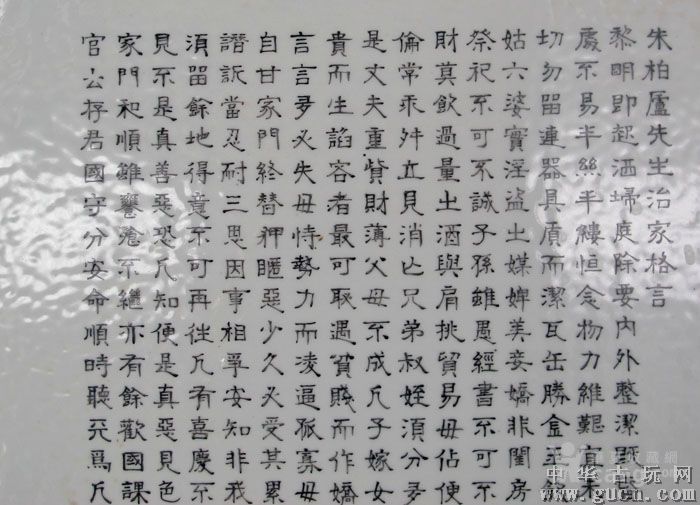 朱柏廬先生治家格言
黎明即起洒埽庭除要内外整潔即昏
處不易半絲半縷恒念物力維艱宜未
切勿留連器具質而潔瓦缶勝金玉飲
姑六婆實淫盗之媒婢美妾嬌非閨房
祭祀不可不誠子孫雖愚經書不可不
財莫飲過量之酒與肩挑貿易毋佔便
倫常乖舛立見消亡兄弟叔姪須分多
是丈夫重貲財薄父母不成人子嫁女
貴而生諂容者最可恥遇貧賤而作嬌
言言多必失毋恃勢力而淩逼孤寡毋
自甘家門終替狎暱惡少久必受其累
譖訴當忍耐三思因事相爭安知非我
須留餘地得意不可再往凡有喜慶不
見不是真善惡恐人知便是真惡見色
家門和順雖饔飧不繼亦有餘歡國課
官心存君國守分安命順時聽天爲人
中华古玩网
www.gucn.com